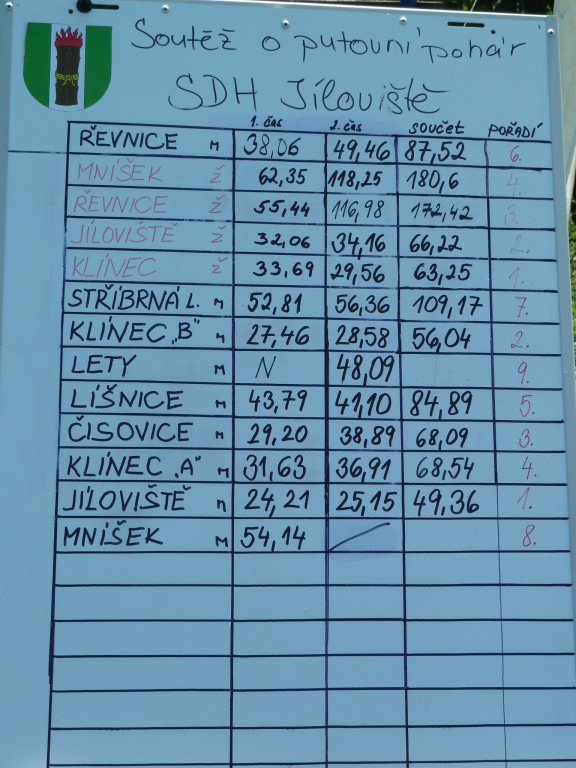 Soutěž o putovní pohár
SDH Jíloviště
1. čas 2. čas součet pořadí
ŘEVNICE M 38,06 49,46 87,52 6.
MNÍŠEK Ž 62,35 118,25 180,6 4.
ŘEVNICE Ž 55,44 116,98 172,42 3.
JÍLOVIŠTĚ Ž 32,06 34,16 66,22 2.
KLÍNEC Ž 33,69 29,56 63,25 1.
STŘÍBRNÁ L. M 52,81 56,36 109,17 7.
KLÍNEC „B" M 27,46 28,58 56,04 2.
LETY M N 48,09 9.
LÍŠNICE M 43,79 41,10 84,89 5.
ČISOVICE M 29,20 38,89 68,09 3.
KLÍNEC „A" M 31,63 36,91 68,54 4.
JÍLOVIŠTĚ M 24,21 25,15 49,36 1.
MNÍŠEK M 54,14 8.